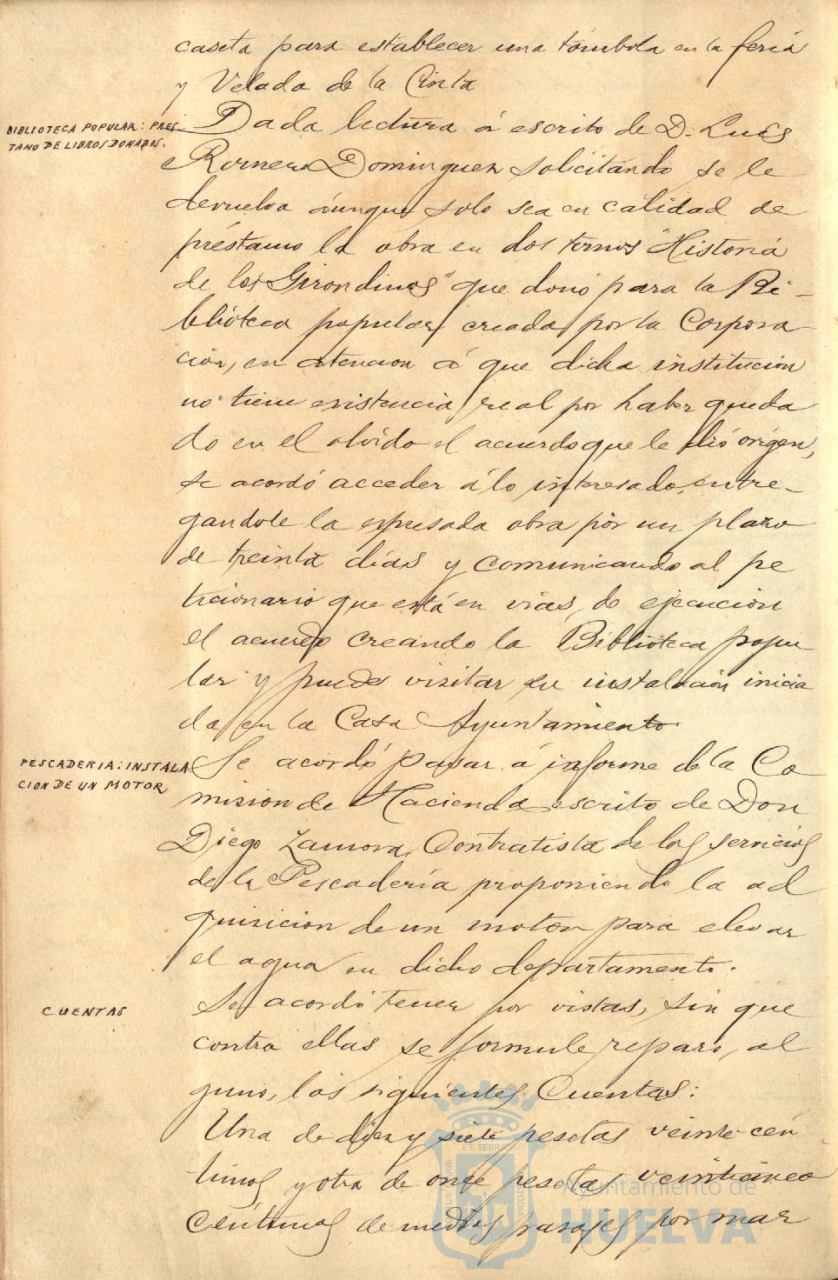 caseta para establecer una tómbola en la feria
y Velada de la Cinta
BIBLIOTECA POPULAR: PRES
TAMO DE LIBROS DONADOS.
Dada lectura á escrito de D. Luis
Romero Dominguez solicitando se le
devuelva aunque solo sea en calidad de
préstamo la obra en dos tomos "Historia
de los Girondinos" que donó para la Bi-
blioteca popular creada por la Corpora-
ción, en atencion á que dicha institución
no tiene existencia real por haber queda
do en el olvido el acuerdo que le dió origen,
se acordó acceder á lo interesado, entre-
gandole la expresada obra por un plazo
de treinta días y comunicando al pe
ticionario que está en vias de ejecución
el acuerdo creando la Biblioteca popu
lar y puede visitar su instalación inicia
da en la Casa Ayuntamiento
PESCADERIA: INSTALA
CION DE UN MOTOR
Se acordó pasar á informe de la Co
mision de Hacienda escrito de Don
Diego Zamora, Contratista de los servicios
de la Pescadería proponiendo la ad
quisicion de un motor para elevar
el agua en dicho departamento.
CUENTAS
Se acordó tener por vistas, sin que
contra ellas se formule reparo, al
guno, las siguientes Cuentas:
Una de diez y siete pesetas veinte cen
timos y otra de once pesetas veinticinco
céntimos de medios pasajes por mar
Ayuntamiento de
HUELVA